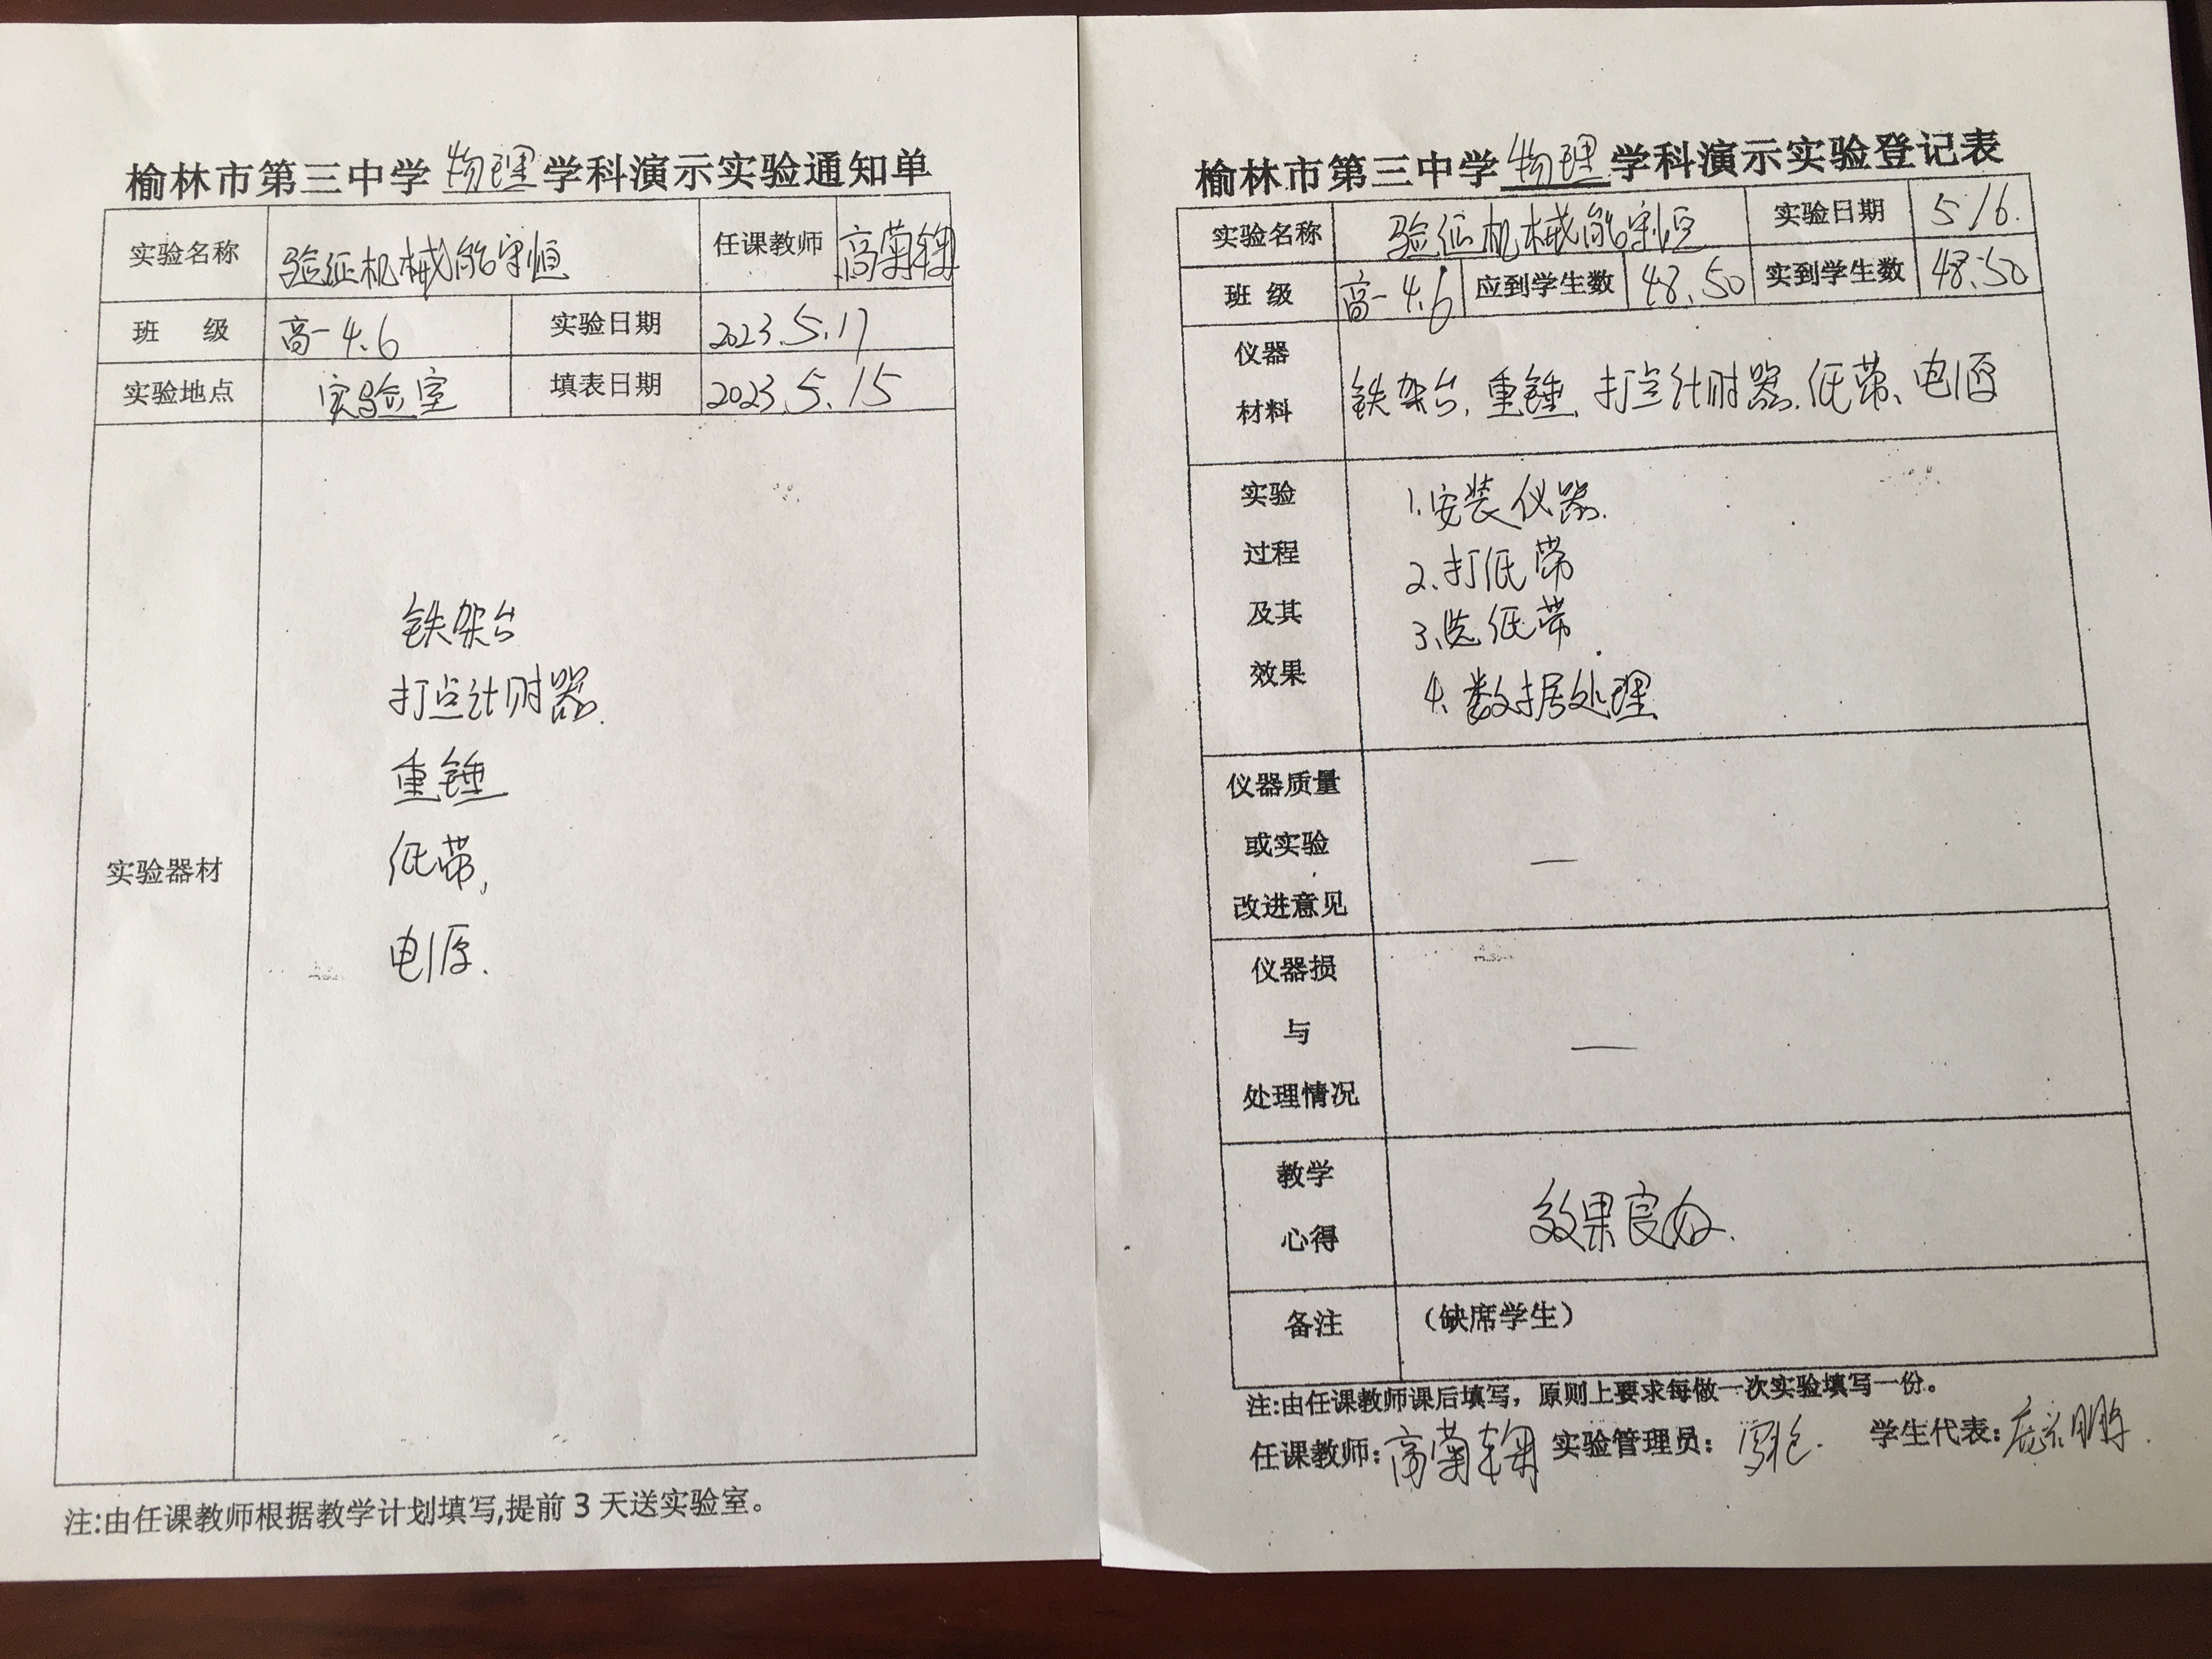 榆林市第三中学 物理 学科演示实验通知单
实验名称 验证机械能守恒 任课教师 高菊
班 级 高一4.6 实验日期 2023.5.17
实验地点 实验室 填表日期 2023.5.15
实验器材
铁架台
打点计时器.
重锤
纸带,
电源.
注:由任课教师根据教学计划填写,提前3天送实验室。
榆林市第三中学 物理 学科演示实验登记表
实验名称 验证机械能守恒 实验日期 5/6.
班 级 高一4.6 应到学生数 48、50 实到学生数 48、50
仪器
材料
铁架台、重锤、打点计时器、纸带、电源
实验
过程
及其
效果
1.安装仪器.
2.打纸带
3.选纸带
4.数据处理
仪器质量
或实验
改进意见
—
仪器损
与
处理情况
—
教学
心得
效果良好.
备注 （缺席学生）
注:由任课教师课后填写，原则上要求每做一次实验填写一份。
任课教师: 高菊 实验管理员: 学生代表: